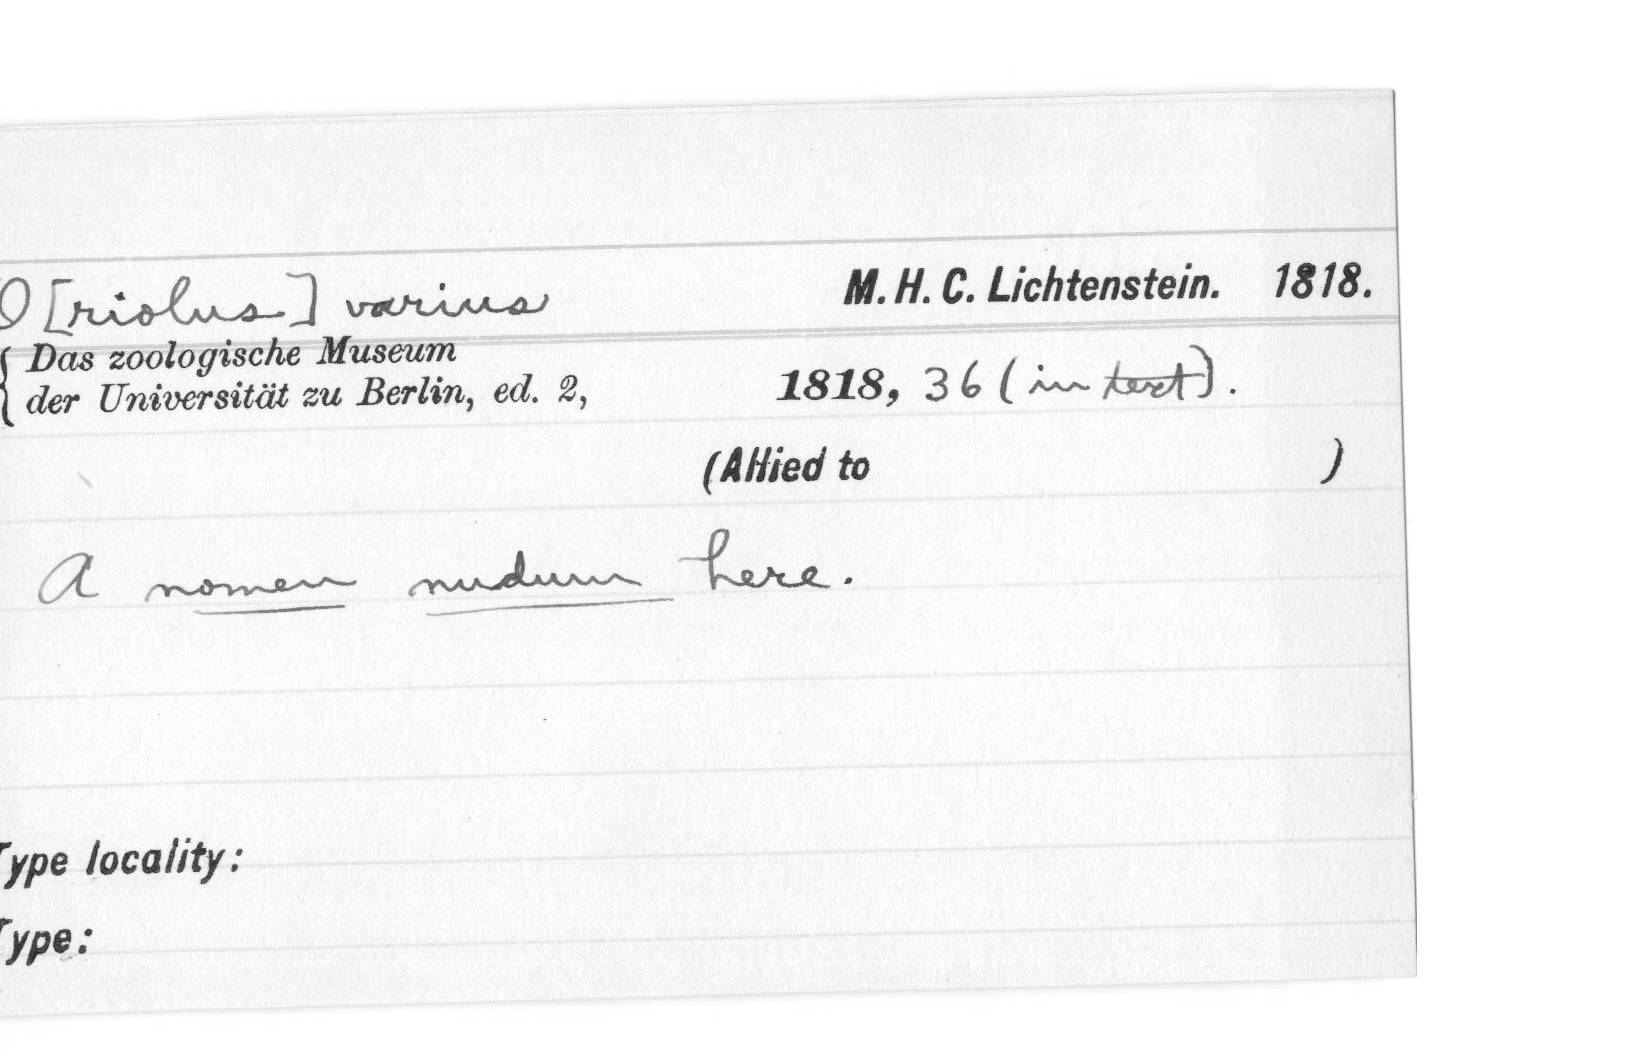 O[riolus] varius M. H. C. Lichtenstein. 1818.
{ Das zoologische Museum
der Universität zu Berlin, ed. 2, 1818, 36 (in text).
(Allied to )
A nomen nudum here.
Type locality:
Type: